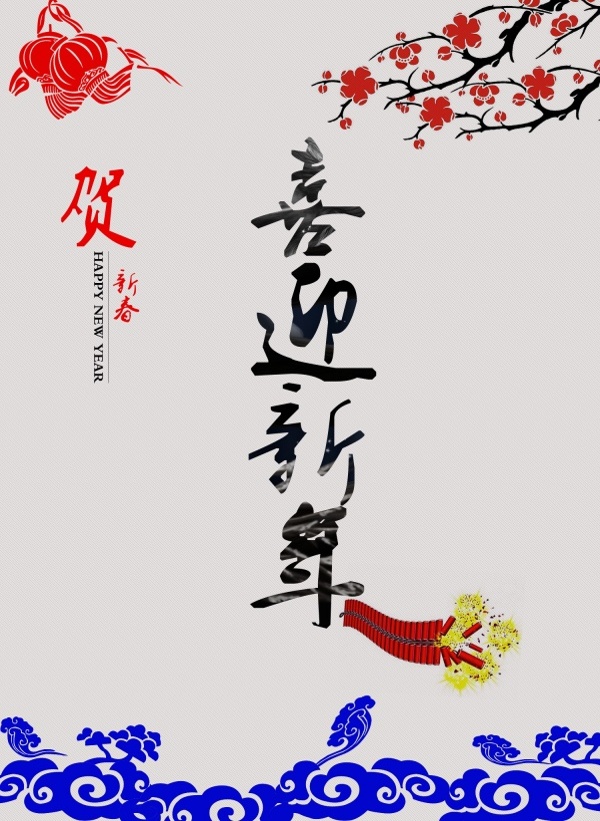 贺
新春
HAPPY NEW YEAR
喜迎新年